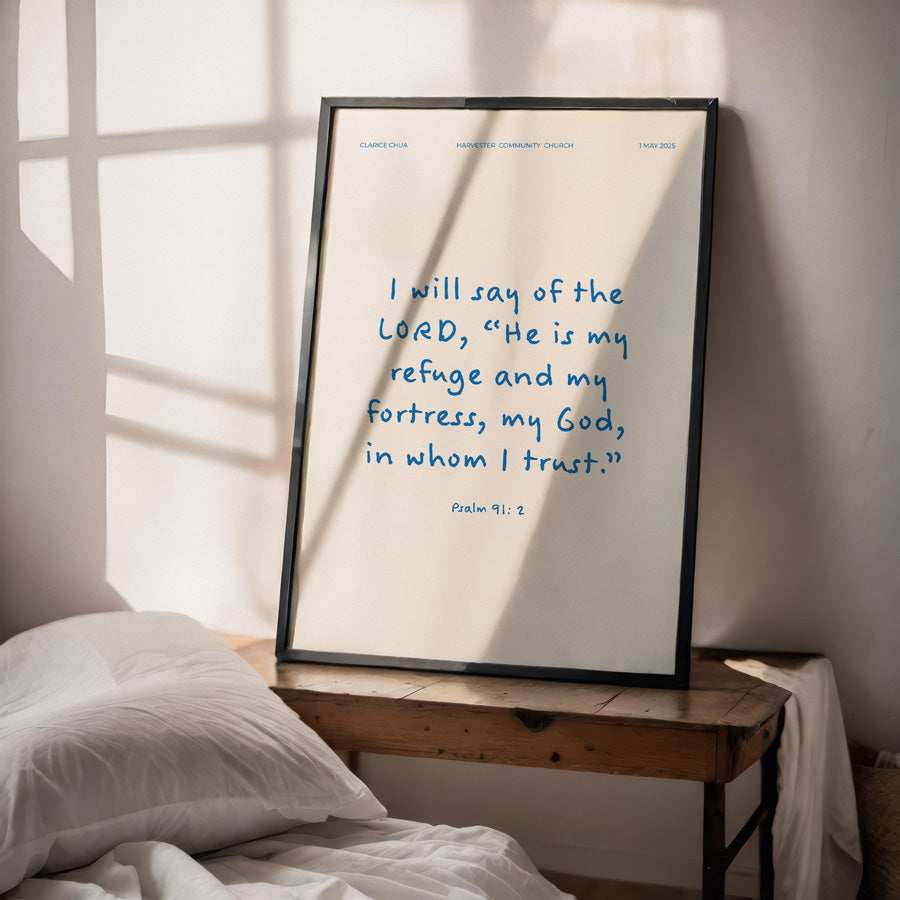 CLARICE CHUA HARVESTER COMMUNITY CHURCH 1 MAY 2025
I will say of the
LORD, “He is my
refuge and my
fortress, my God,
in whom I trust.”
Psalm 91: 2